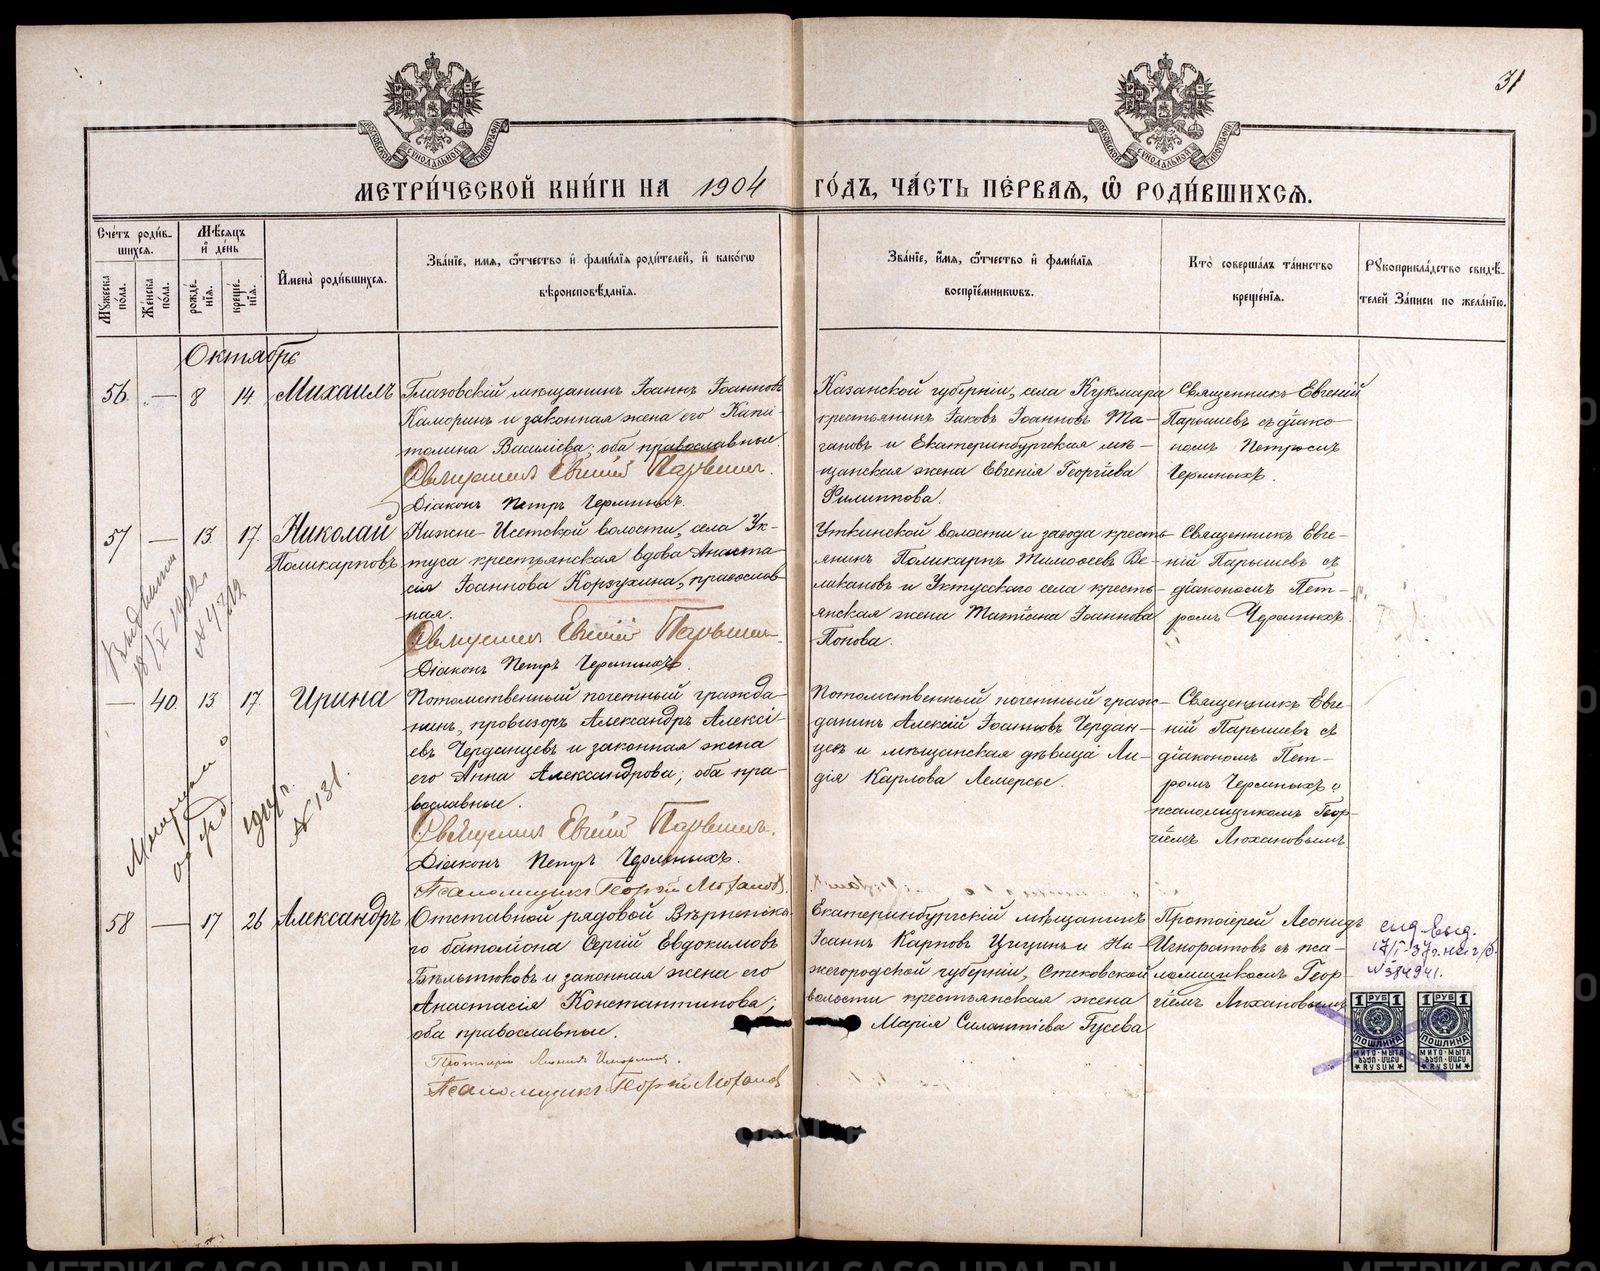 31
МОСКОВСКОЙ СѴНОДАЛЬНОЙ ТИПОГРАФІИ
МОСКОВСКОЙ СѴНОДАЛЬНОЙ ТИПОГРАФІИ
МЕТРИ́ЧЕСКОЙ КНИ́ГИ НА 1904 ГО́ДЪ, ЧА́СТЬ ПЕ́РВАѦ, Ѡ҆ РОДИ́ВШИХСѦ.
Сче́тъ роди́в-
шихсѧ.
Мѣ́сѧцъ
и҆ де́нь
Мꙋ́жеска по́ла.
Же́нска по́ла.
рожде́-
нїѧ.
креще́-
нїѧ.
И҆мена̀ роди́вшихсѧ.
Зва́нїе, имѧ, ѻ҆́тчество и҆ фами́лїѧ роди́телей, и҆ како́гѡ
вѣроисповѣ́данїѧ.
Зва́нїе, и҆́мѧ, ѻ҆́тчество и҆ фами́лїѧ
воспрїе́мникѡвъ.
Кто̀ соверша́лъ та́инство
креще́нїѧ.
Рꙋкоприкла́дство свидѣ́-
телей За́писи по жела́нїю.
Октябрь
56 — 8 14 Михаилъ
Глазовскій мѣщанинъ Іоаннъ Іоанновъ
Каморинъ и законная жена его Капи-
толина Васильева; оба православные
Священникъ Евгеній Парышевъ.
Діаконъ Петръ Черемныхъ.
Казанской губерніи, села Кукмара
крестьянинъ Іаковъ Іоанновъ Та-
гановъ и Екатеринбургская мѣ-
щанская жена Евгенія Георгіева
Филиппова.
Священникъ Евгеній
Парышевъ съ діако-
номъ Петромъ
Черемныхъ.
57 — 13 17 Николай
Поликарповъ
Нижне-Исетской волости, села Ук-
туса крестьянская вдова Анаста-
сія Іоаннова Корзухина, православ-
ная.
Священникъ Евгеній Парышевъ.
Діаконъ Петръ Черемныхъ.
Уткинской волости и завода кресть-
янинъ Поликарпъ Тимоѳеевъ Ве-
ликановъ и Уктусскаго села кресть-
янская жена Татіана Іоаннова
Попова.
Священникъ Евге-
ній Парышевъ съ
діакономъ Пет-
ромъ Черемныхъ.
18/X 1922
№ 4722
— 40 13 17 Ирина
Потомственный почетный гражда-
нинъ, провизоръ Александръ Алексі-
евъ Черданцевъ и законная жена
его Анна Александрова, оба пра-
вославные.
Священникъ Евгеній Парышевъ.
Діаконъ Петръ Черемныхъ.
Псаломщикъ Георгій Мохановъ.
Потомственный почетный граж-
данинъ Алексій Іоанновъ Чердан-
цевъ и мѣщанская дѣвица Ли-
дія Карлова Лемерсье.
Священникъ Евге-
ній Парышевъ съ
діакономъ Пет-
ромъ Черемныхъ и
псаломщикомъ Геор-
гіемъ Мохановымъ.
1914 г.
№ 131.
58 — 17 26 Александръ
Отставной рядовой Вѣрненска-
го баталіона Сергій Евдокимовъ
Бѣльтюковъ и законная жена его
Анастасія Константинова;
оба православные.
Псаломщикъ Георгій Мохановъ
Екатеринбургскій мѣщанинъ
Іоаннъ Карповъ Цицынъ и Ни-
жегородской губерніи, Стексовской
волости крестьянская жена
Марія Силантіева Гусева
Протоіерей Леонидъ
Игноратовъ съ пса-
ломщикомъ Геор-
гіемъ Мохановымъ
17/I-37 г.
№ 584941.
1 РУБ 1
ПОШЛИНА
МИТО·МЫТА
RYSUM
1 РУБ 1
ПОШЛИНА
МИТО·МЫТА
RYSUM
METRIKI.GASO-URAL.RU